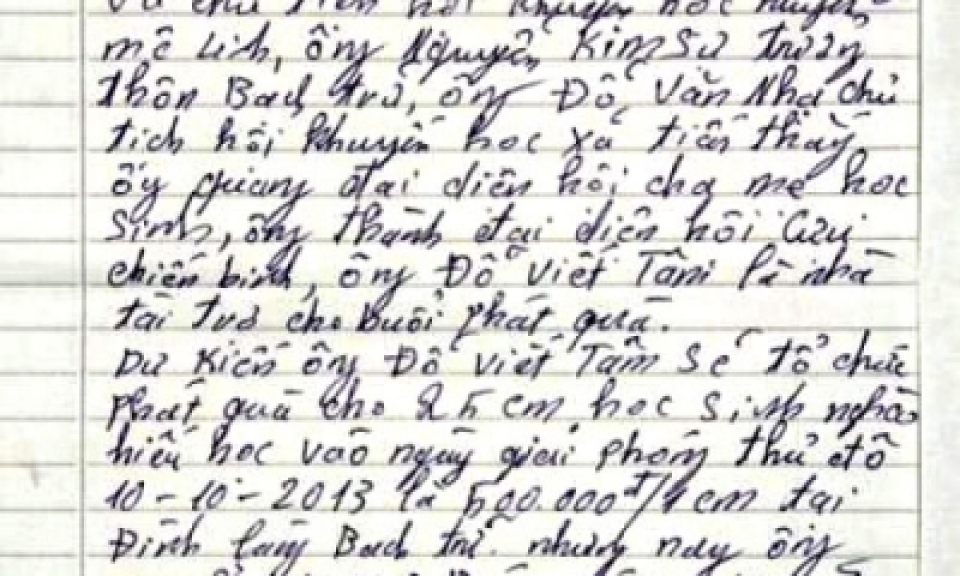 và chủ tịch hội khuyến học huyện
mê Linh, ông Nguyễn Kim Sư trưởng
thôn Bạch trữ, ông Đỗ Văn Nhạ chủ
tịch hội khuyến học xã tiến thắng
ông quang đại diện hội cha mẹ học
Sinh, ông thành đại diện hội Cựu
chiến binh, ông Đỗ Viết Tâm là nhà
tài trợ cho buổi phát quà.
Dự Kiến ông Đỗ Viết Tâm sẽ tổ chức
phát quà cho 25 em học sinh nghèo
hiếu học vào ngày giải phóng thủ đô
10-10-2013 là 500.000đ/1 em tại
Đình làng Bạch trữ. nhưng nay ông